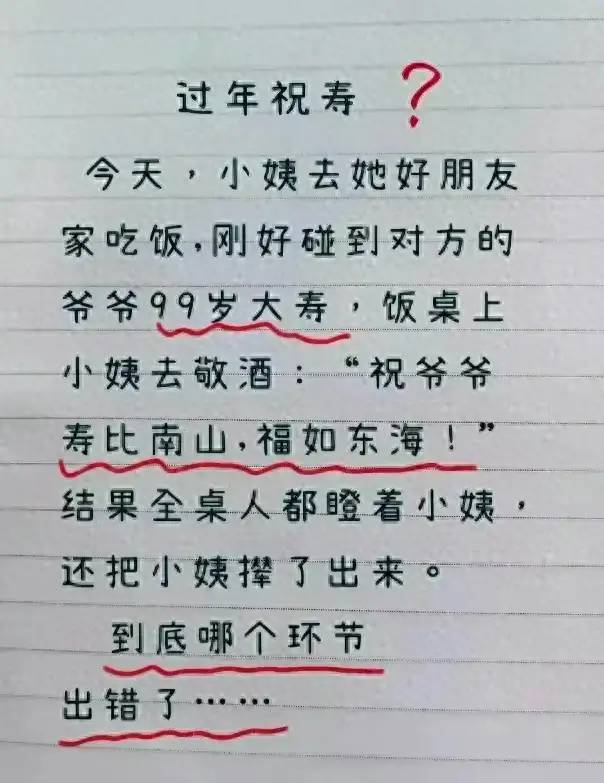 过年祝寿？
今天，小姨去她好朋友
家吃饭,刚好碰到对方的
爷爷99岁大寿，饭桌上
小姨去敬酒：“祝爷爷
寿比南山,福如东海！”
结果全桌人都瞪着小姨，
还把小姨撵了出来。
到底哪个环节
出错了……